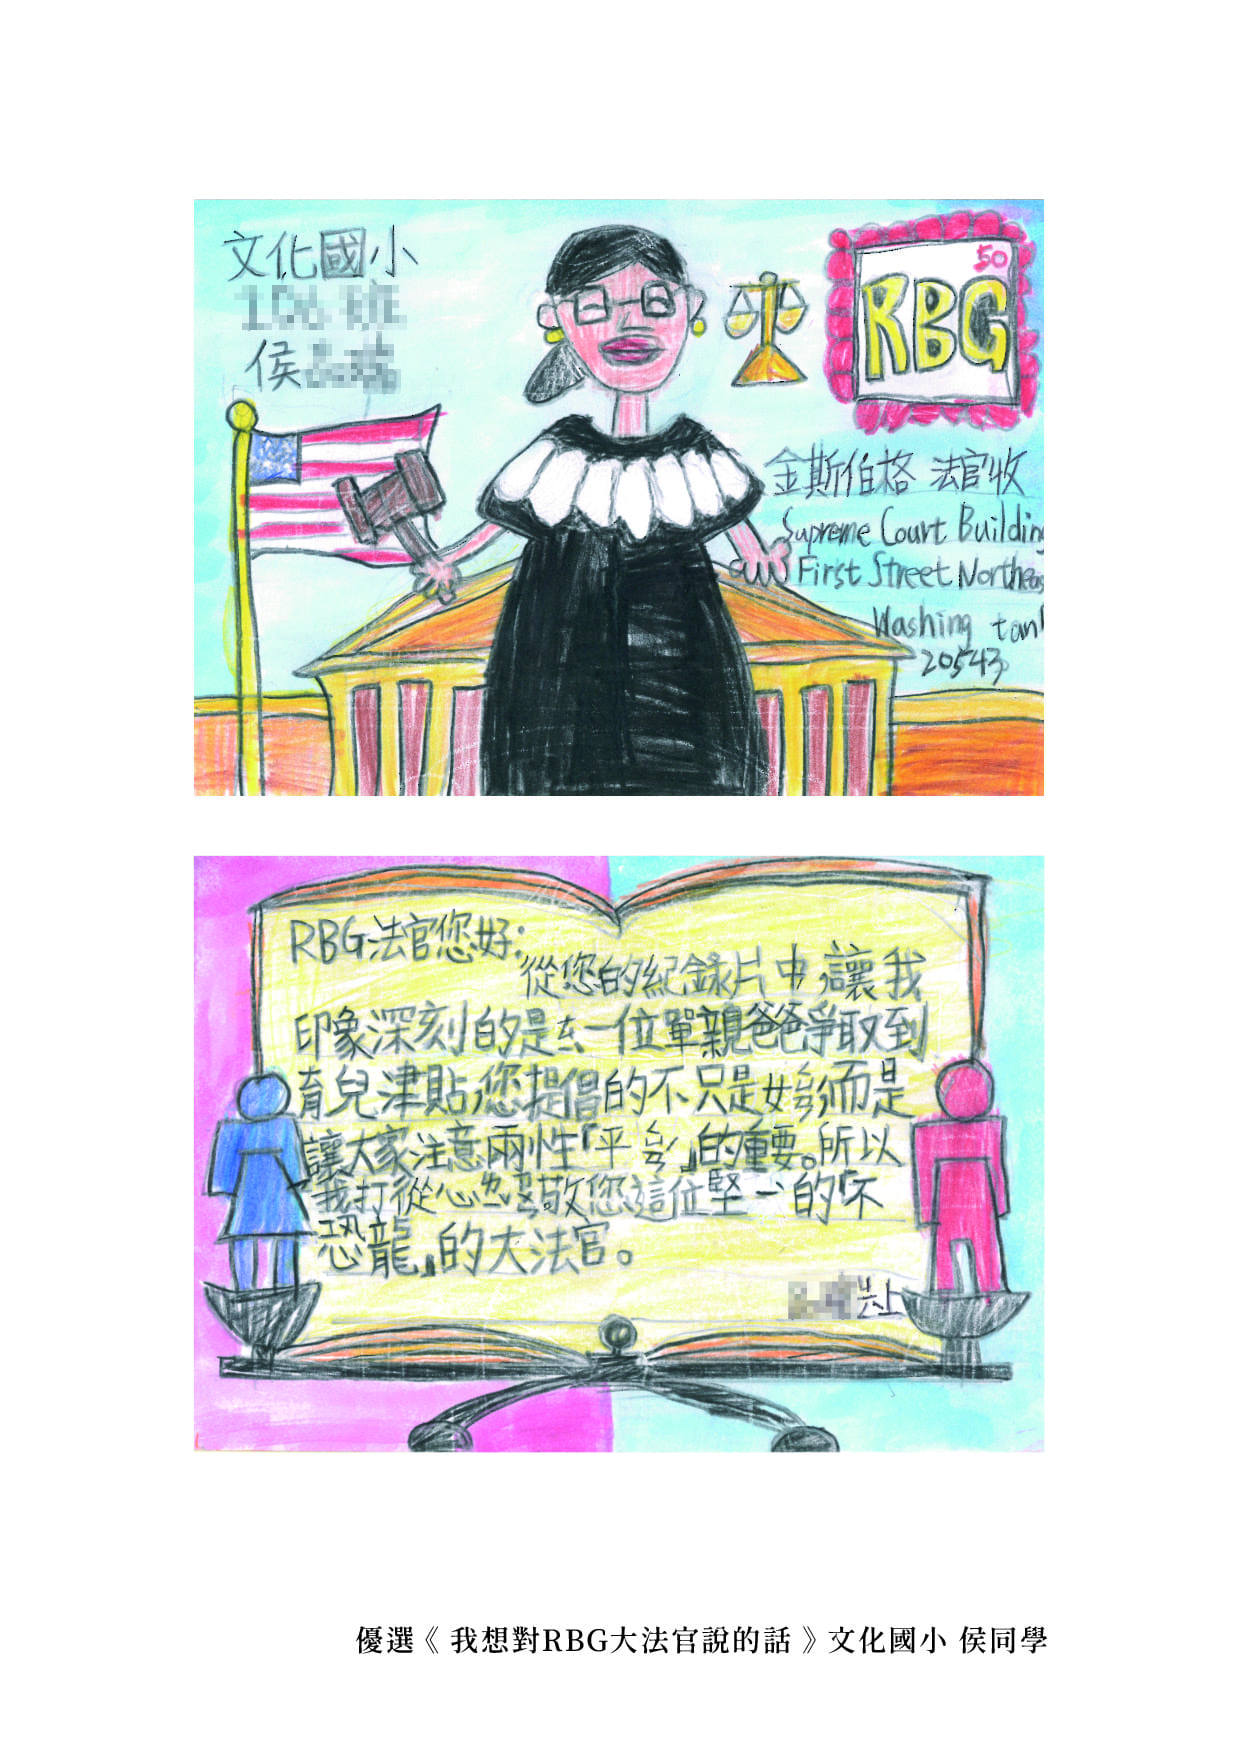 文化國小
侯
50
RBG
金斯伯格 法官收
Supreme Court Building
First Street Northeas
Washing ton
20543
RBG法官您好:
從您的紀錄片中,讓我
印象深刻的是 一位單親爸爸爭取到
育兒津貼,您提倡的不只是女ㄑㄩㄢˊ,而是
讓大家注意兩性「平ㄑㄩㄢˊ」的重要。所以
我打從心 敬您這位堅 的「不
恐龍」的大法官。
上
優選《 我想對RBG大法官說的話 》文化國小 侯同學